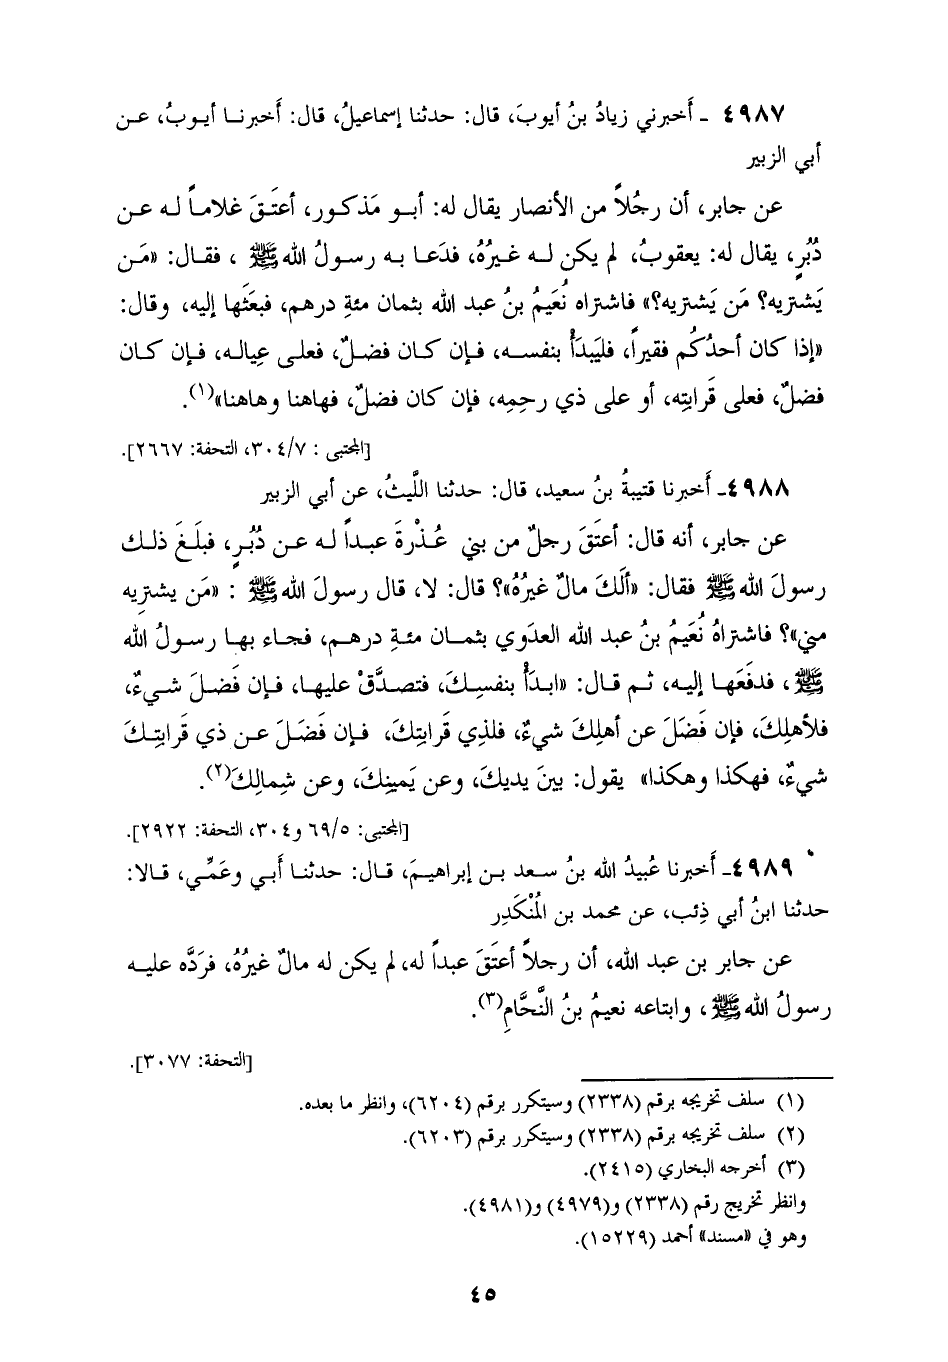 ٤٩٨٧ ـ أَخبرني زيادُ بنُ أيوبَ، قال: حدثنا إسماعيلُ، قال: أَخبرنا أيوبُ، عن
أبي الزبير
عن جابر، أن رجُلاً من الأنصار يقال له: أبو مَذكور، أعتَقَ غلاماً له عن
دُبُرٍ، يقال له: يعقوبُ، لم يكن له غيرُهُ، فدَعا به رسولُ الله ﷺ ، فقال: «مَن
يَشتريه؟ مَن يَشتريه؟» فاشتراه نُعَيمُ بنُ عبد الله بثمان مئةِ درهم، فبعَثَها إليه، وقال:
«إذا كان أحدُكُم فقيراً، فليَبدَأْ بنفسه، فإن كان فضلٌ، فعلى عِياله، فإن كان
فضلٌ، فعلى قَرابتِه، أو على ذي رحِمِه، فإن كان فضلٌ، فهاهنا وهاهنا»(١).
[المجتبى : ٣٠٤/٧، التحفة: ٢٦٦٧].
٤٩٨٨ـ أَخبرنا قتيبةُ بنُ سعيد، قال: حدثنا اللَّيثُ، عن أبي الزبير
عن جابر، أنه قال: أعتَقَ رجلٌ من بني عُذْرةَ عبداً له عن دُبُرٍ، فبلَغَ ذلك
رسولَ الله ﷺ فقال: «أَلَكَ مالٌ غيرُهُ»؟ قال: لا، قال رسولَ الله ﷺ : «مَن يشتريه
مني»؟ فاشتراهُ نُعَيمُ بنُ عبد الله العدَوي بثمان مئةِ درهم، فجاء بها رسولُ الله
ﷺ ، فدفَعَها إليه، ثم قال: «ابدَأْ بنفسِكَ، فتصدَّقْ عليها، فإن فَضلَ شيءٌ،
فلأهلِكَ، فإن فَضَلَ عن أهلِكَ شيءٌ، فلذِي قَرابتِكَ، فإن فَضَلَ عن ذي قَرابتِكَ
شيءٌ، فهكذا وهكذا» يقول: بينَ يديكَ، وعن يَمينِكَ، وعن شِمالِكَ(٢).
[المجتبى: ٦٩/٥ و٣٠٤، التحفة: ٢٩٢٢].
٤٩٨٩ـ أَخبرنا عُبيدُ الله بنُ سعد بن إبراهيمَ، قال: حدثنا أَبي وعَمِّي، قالا:
حدثنا ابنُ أبي ذِئب، عن محمد بن المُنْكَدِر
عن جابر بن عبد الله، أن رجلاً أعتَقَ عبداً له، لم يكن له مالٌ غيرُهُ، فرَدَّه عليه
رسولُ الله ﷺ ، وابتاعه نعيمُ بنُ النَّحَّامِ(٣).
[التحفة: ٣٠٧٧].
(١) سلف تخريجه برقم (٢٣٣٨) وسيتكرر برقم (٦٢٠٤)، وانظر ما بعده.
(٢) سلف تخريجه برقم (٢٣٣٨) وسيتكرر برقم (٦٢٠٣).
(٣) أخرجه البخاري (٢٤١٥).
وانظر تخريج رقم (٢٣٣٨) و(٤٩٧٩) و(٤٩٨١).
وهو في «مسند» أحمد (١٥٢٢٩).
٤٥